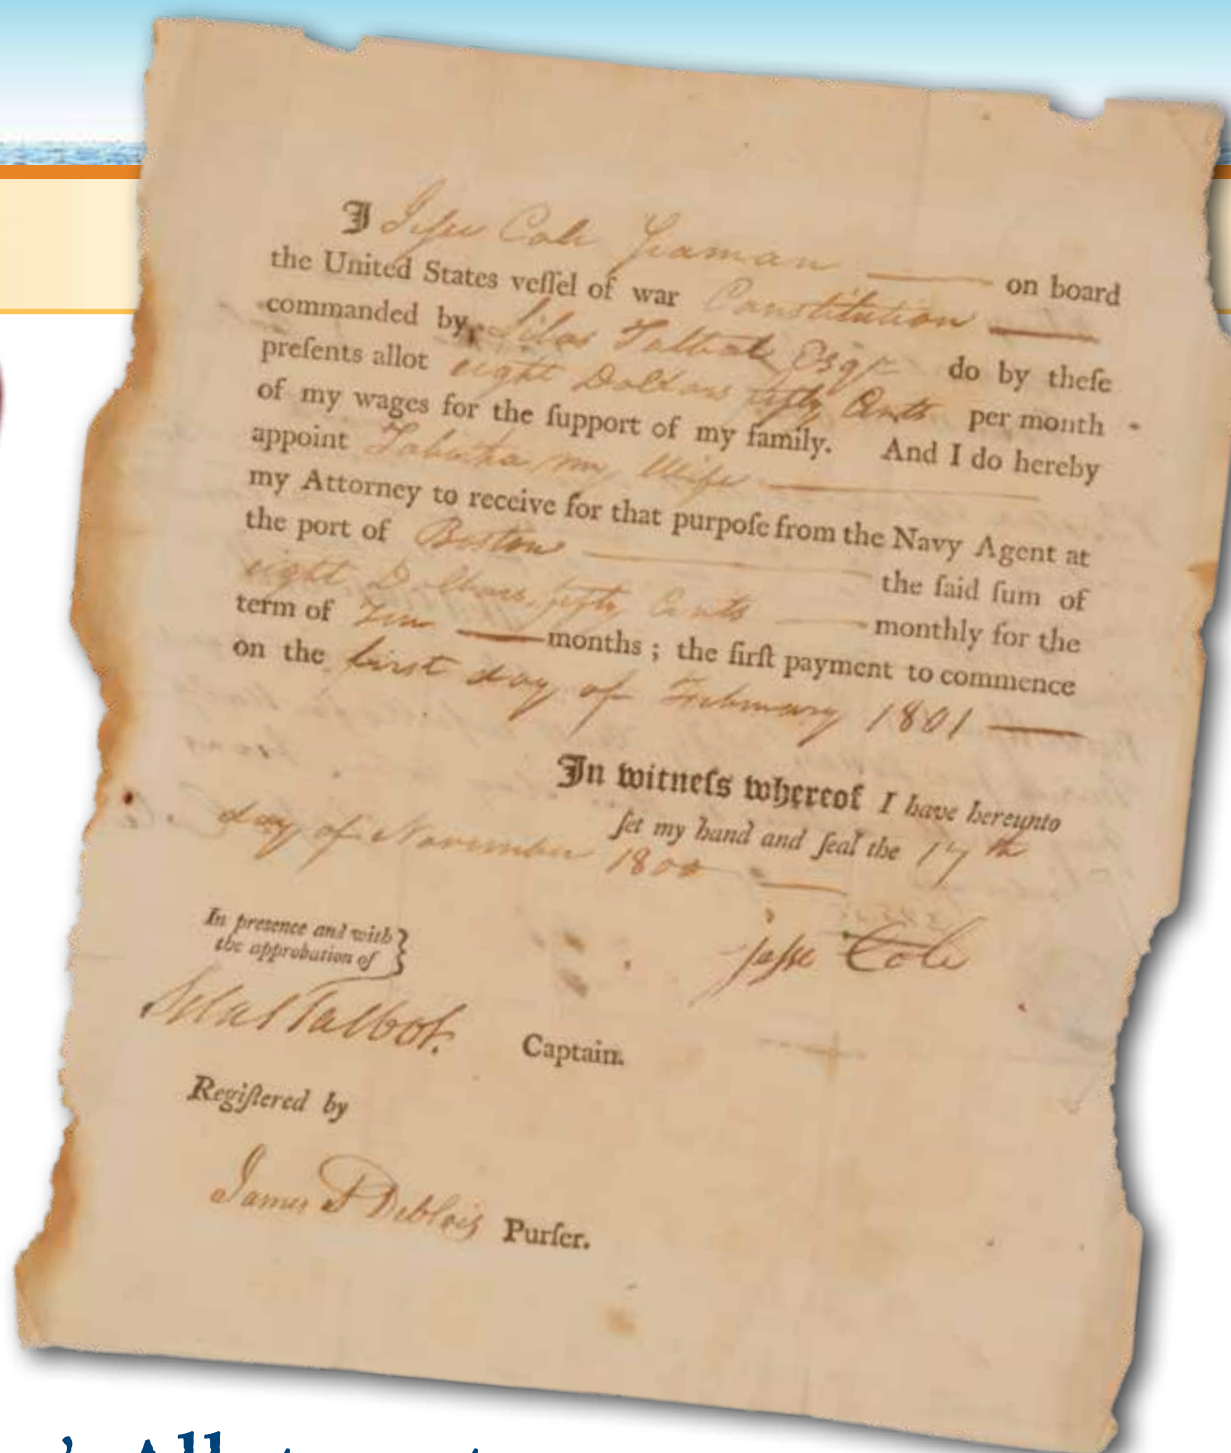 I Jesse Cole Seaman on board
the United States veſſel of war Constitution
commanded by Silas Talbot Esqr do by theſe
preſents allot eight Dollars fifty Cents per month
of my wages for the ſupport of my family. And I do hereby
appoint Tabitha my Wife
my Attorney to receive for that purpoſe from the Navy Agent at
the port of Boston the ſaid ſum of
eight Dollars, fifty Cents monthly for the
term of months ; the firſt payment to commence
on the first day of February 1801
In witneſs whereof I have hereunto
ſet my hand and ſeal the 17th
day of November 1800
In presence and with
the approbation of
Jesse Cole
Silas Talbot. Captain.
Regiſtered by
James Deblois Purſer.
Allotment